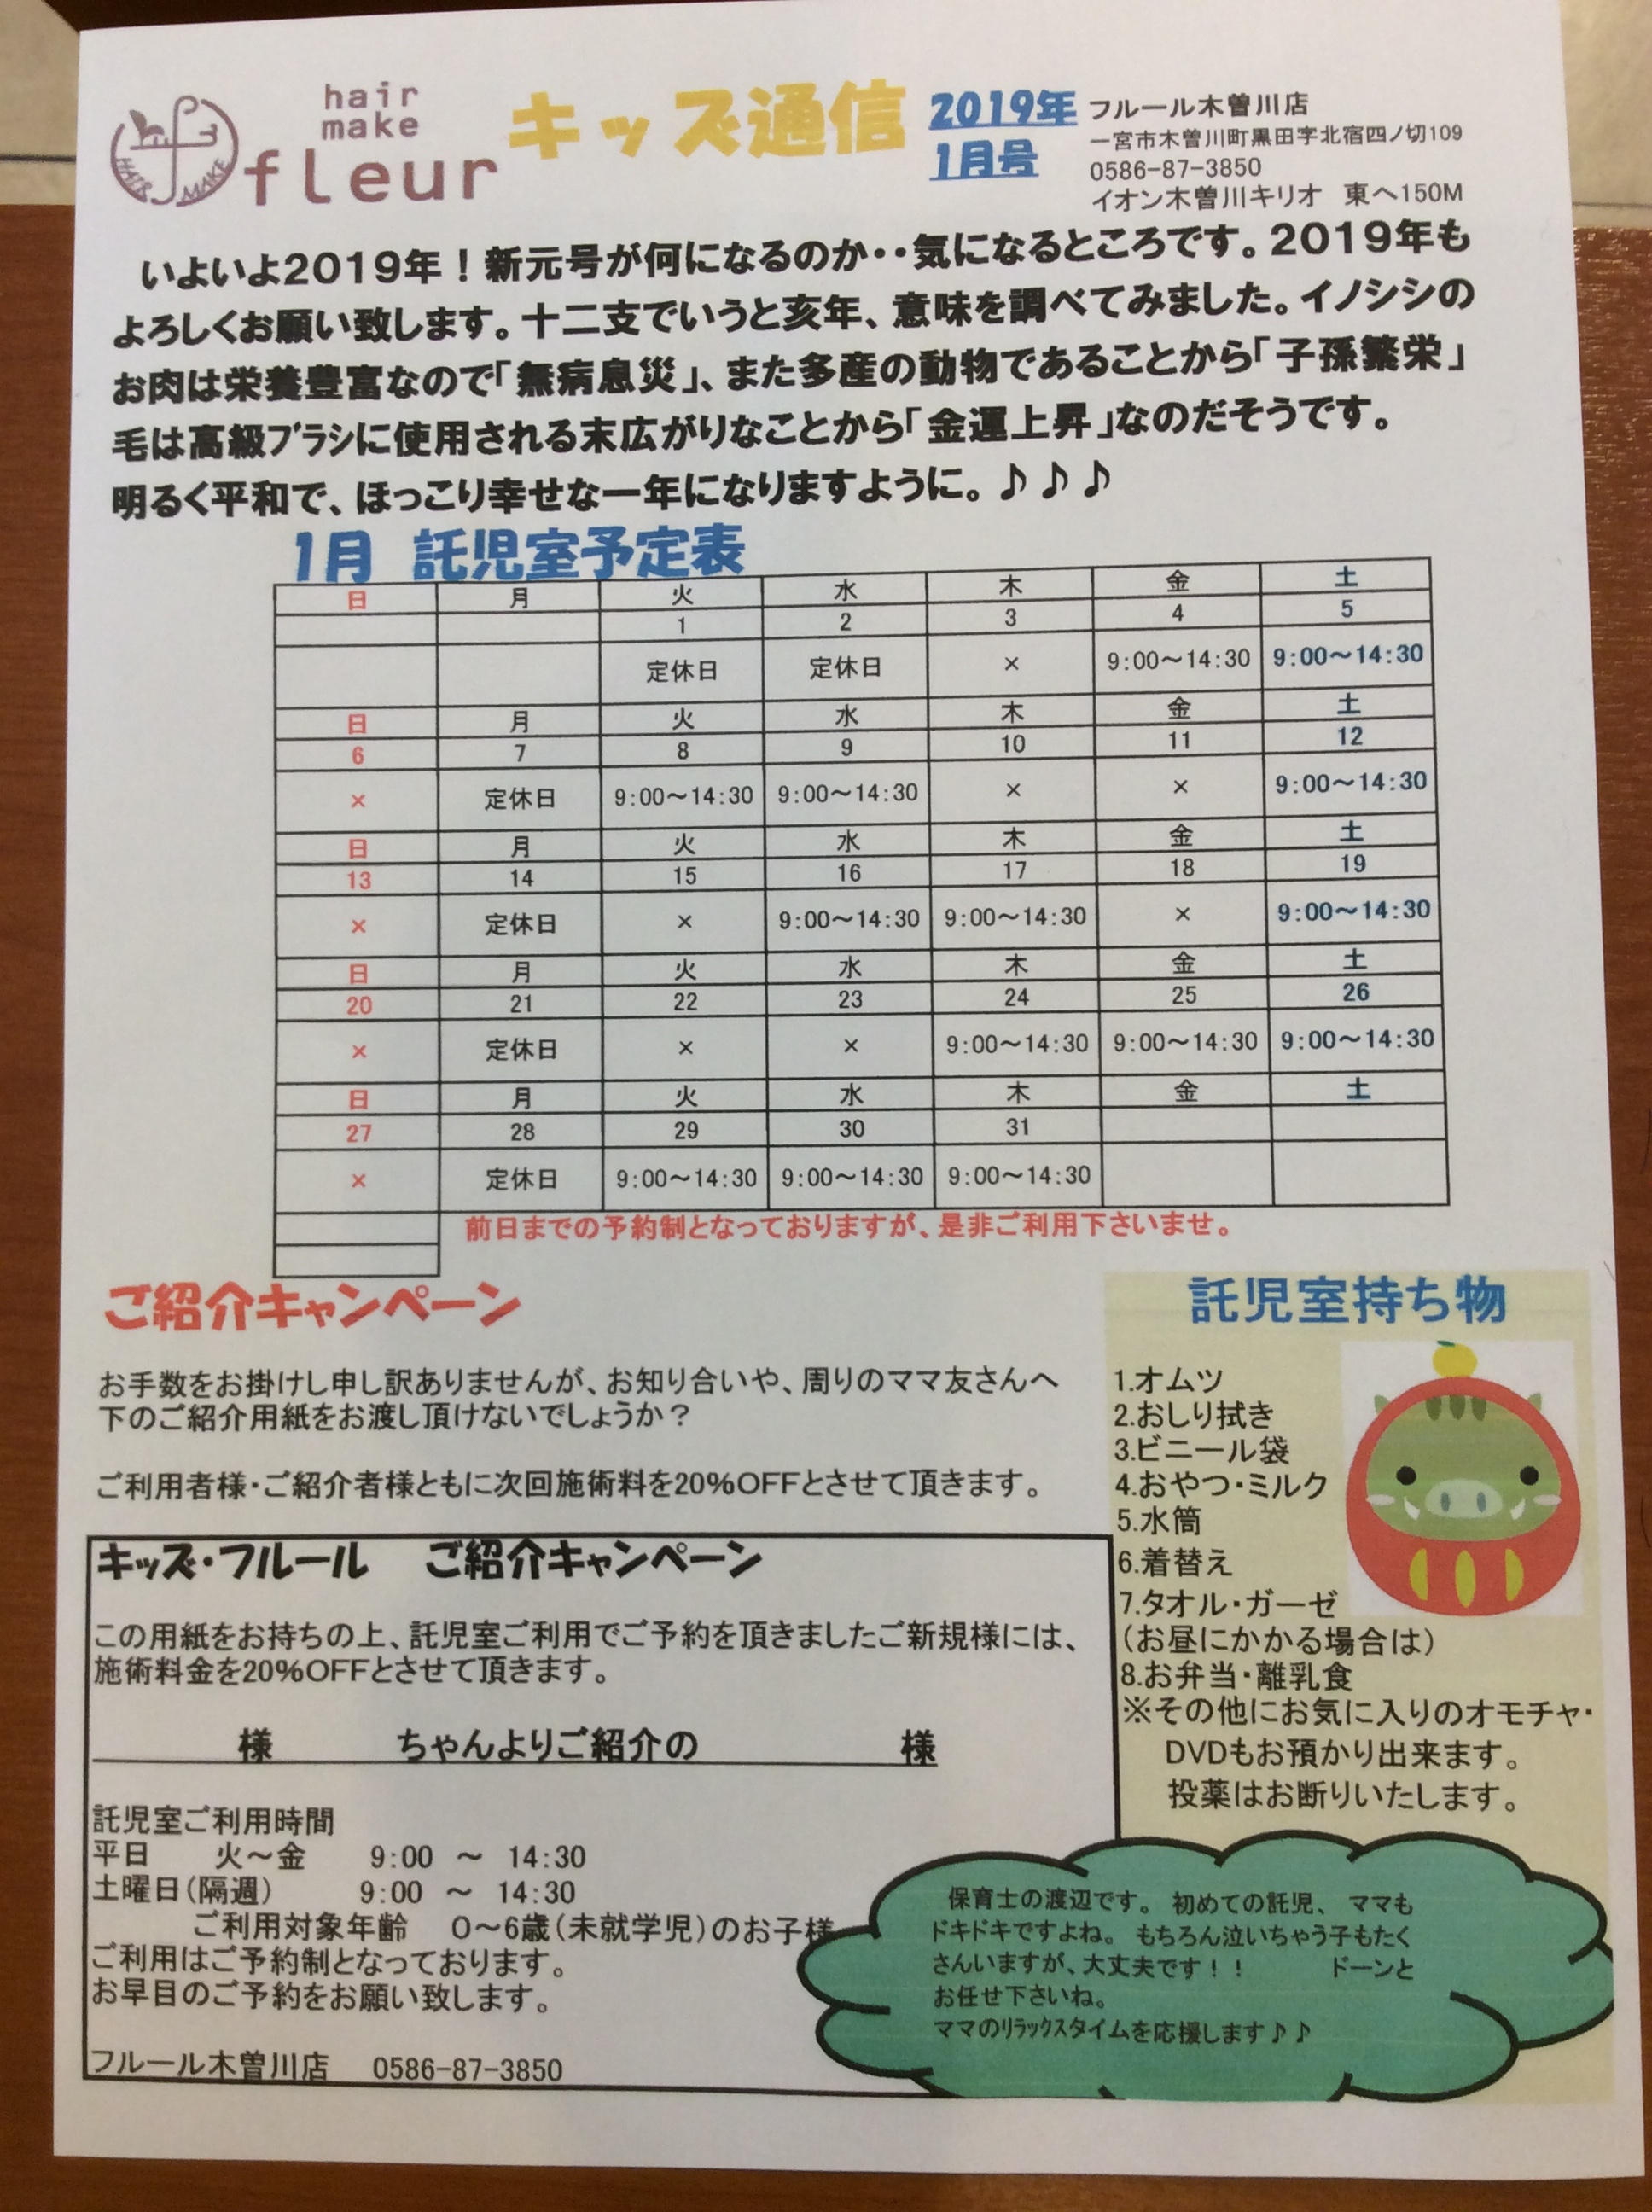 hair
make
fleur
HAIR MAKE
キッズ通信
2019年
1月号
フルール木曽川店
一宮市木曽川町黒田字北宿四ノ切109
0586-87-3850
イオン木曽川キリオ 東へ150M
いよいよ2019年！新元号が何になるのか・・気になるところです。2019年も
よろしくお願い致します。十二支でいうと亥年、意味を調べてみました。イノシシの
お肉は栄養豊富なので「無病息災」、また多産の動物であることから「子孫繁栄」
毛は高級ブラシに使用される末広がりなことから「金運上昇」なのだそうです。
明るく平和で、ほっこり幸せな一年になりますように。♪♪♪
1月 託児室予定表
日 月 火 水 木 金 土
1 2 3 4 5
定休日 定休日 × 9:00～14:30 9:00～14:30
日 月 火 水 木 金 土
6 7 8 9 10 11 12
× 定休日 9:00～14:30 9:00～14:30 × × 9:00～14:30
日 月 火 水 木 金 土
13 14 15 16 17 18 19
× 定休日 × 9:00～14:30 9:00～14:30 × 9:00～14:30
日 月 火 水 木 金 土
20 21 22 23 24 25 26
× 定休日 × × 9:00～14:30 9:00～14:30 9:00～14:30
日 月 火 水 木 金 土
27 28 29 30 31
× 定休日 9:00～14:30 9:00～14:30 9:00～14:30
前日までの予約制となっておりますが、是非ご利用下さいませ。
ご紹介キャンペーン
お手数をお掛けし申し訳ありませんが、お知り合いや、周りのママ友さんへ
下のご紹介用紙をお渡し頂けないでしょうか？
ご利用者様・ご紹介者様ともに次回施術料を20%OFFとさせて頂きます。
キッズ・フルール ご紹介キャンペーン
この用紙をお持ちの上、託児室ご利用でご予約を頂きましたご新規様には、
施術料金を20%OFFとさせて頂きます。
様 ちゃんよりご紹介の 様
託児室ご利用時間
平日 火～金 9:00 ～ 14:30
土曜日(隔週) 9:00 ～ 14:30
ご利用対象年齢 0～6歳(未就学児)のお子様
ご利用はご予約制となっております。
お早目のご予約をお願い致します。
フルール木曽川店 0586-87-3850
託児室持ち物
1.オムツ
2.おしり拭き
3.ビニール袋
4.おやつ・ミルク
5.水筒
6.着替え
7.タオル・ガーゼ
(お昼にかかる場合は)
8.お弁当・離乳食
※その他にお気に入りのオモチャ・
DVDもお預かり出来ます。
投薬はお断りいたします。
保育士の渡辺です。 初めての託児、 ママも
ドキドキですよね。 もちろん泣いちゃう子もたく
さんいますが、大丈夫です！！ ドーンと
お任せ下さいね。
ママのリラックスタイムを応援します♪♪